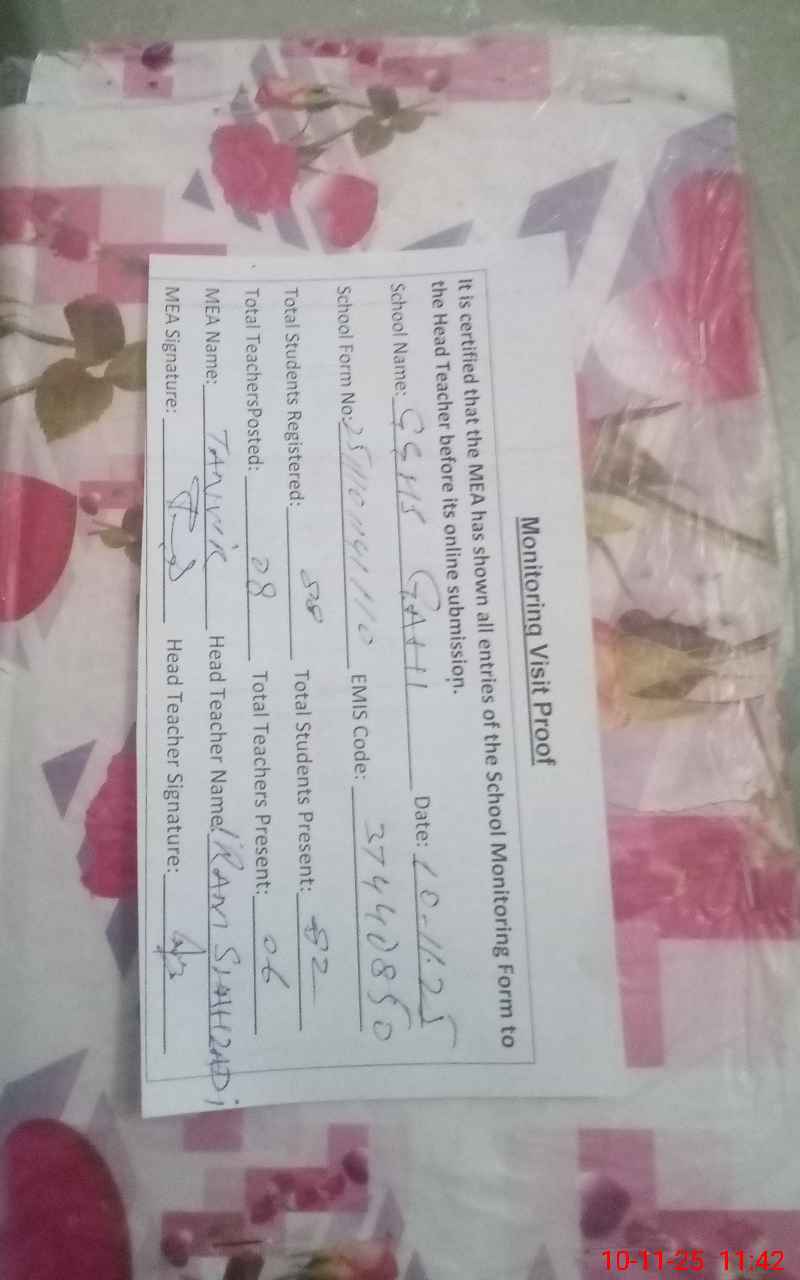 Monitoring Visit Proof
It is certified that the MEA has shown all entries of the School Monitoring Form to
the Head Teacher before its online submission.
School Name: GGHS GAHI Date: 10-11-25
School Form No: EMIS Code: 37440850
Total Students Registered: Total Students Present: 82
Total TeachersPosted: 08 Total Teachers Present: 06
MEA Name: Head Teacher Name: IRAM SHAHZADI
MEA Signature: Head Teacher Signature:
10-11-25 11:42